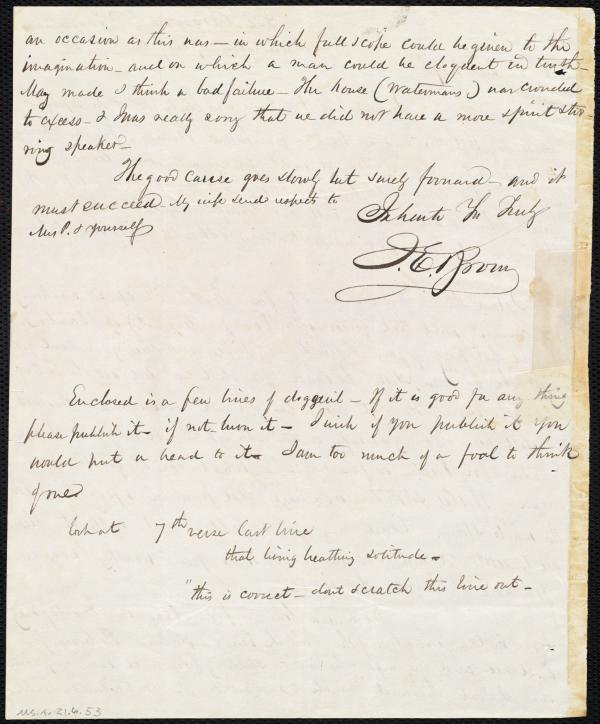 an occasion as this was – in which full scope could be given to the
imagination – and on which a man could be eloquent in truth –
May made I think a bad failure – The house (Watermans) was crowded
to excess – & I was really sorry that we did not have a more spirit stir-
ring speaker –
The good cause goes slowly but surely forward – and it
must succeed – My wife send respect to
Mrs P. & yourself
Truly
J. E. Brown
Enclosed is a few lines of doggeril – If it is good for any thing
please publish it – if not – burn it – I wish if you publish it you
would put a head to it – I am too much of a fool to think
of one
Look at 7th verse last line
that living breathing solitude –
"this is correct – dont scratch this line out –
MS.A. 21.6.53